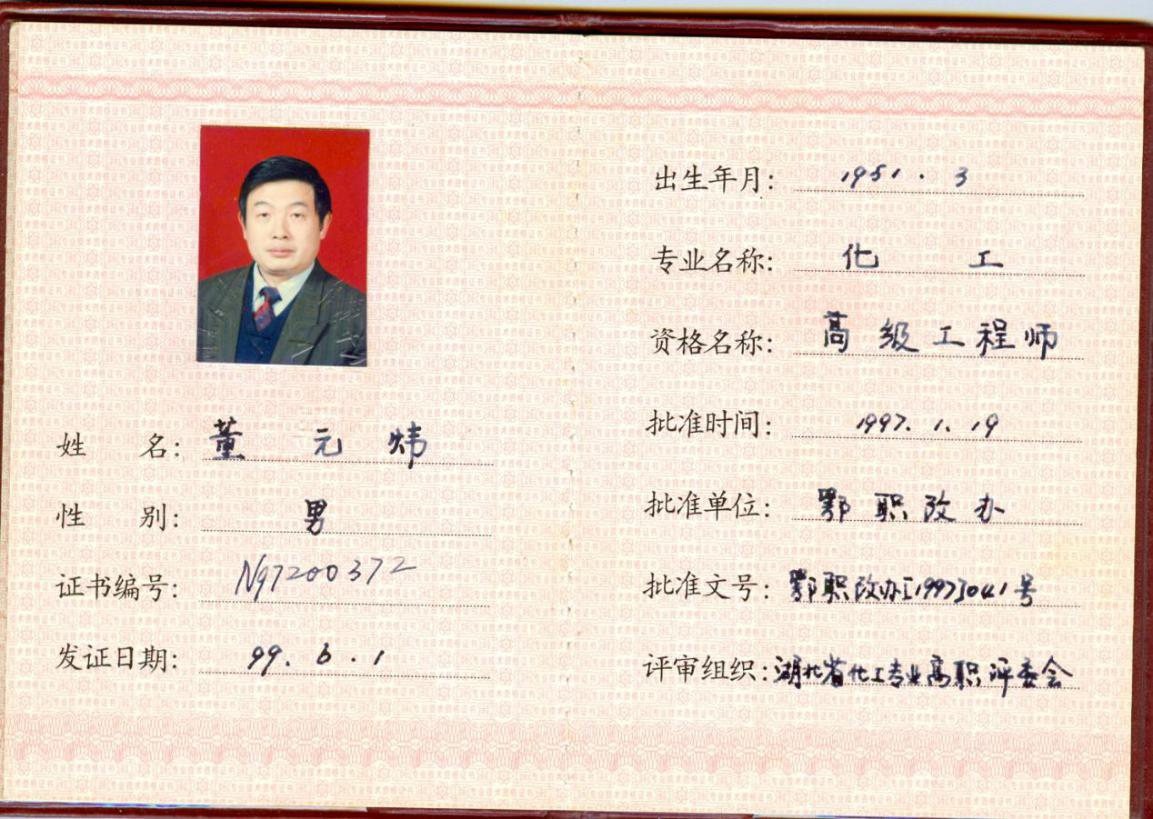 姓 名: 董元炜
性 别: 男
证书编号: N97200372
发证日期: 99.6.1
出生年月: 1951.3
专业名称: 化工
资格名称: 高级工程师
批准时间: 1997.1.19
批准单位: 鄂职改办
批准文号: 鄂职改办[1997]041号
评审组织: 湖北省化工专业高职评委会